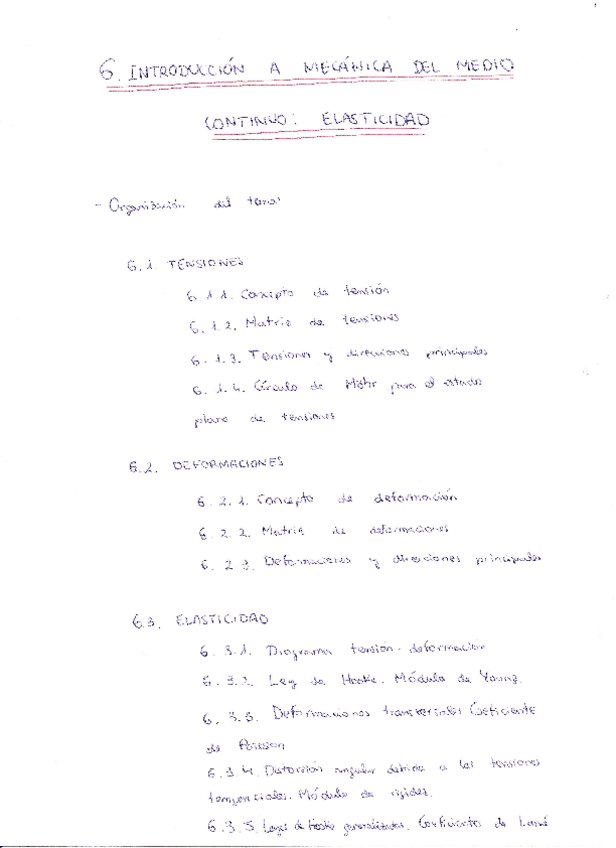 6. INTRODUCCIÓN A MECÁNICA DEL MEDIO
CONTINUO: ELASTICIDAD
- Organización del tema:
6.1. TENSIONES
6.1.1. Concepto de tensión
6.1.2. Matriz de tensiones
6.1.3. Tensiones y direcciones principales
6.1.4. Círculo de Mohr para el estado
plano de tensiones
6.2. DEFORMACIONES
6.2.1. Concepto de deformación
6.2.2. Matriz de deformaciones
6.2.3. Deformaciones y direcciones principales
6.3. ELASTICIDAD
6.3.1. Diagrama tensión-deformación
6.3.2. Ley de Hooke. Módulo de Young.
6.3.3. Deformaciones transversales Coeficiente
de Poisson
6.3.4. Distorsión angular debida a las tensiones
tangenciales. Módulo de rigidez.
6.3.5. Leyes de Hooke generalizadas. Coeficientes de Lamé